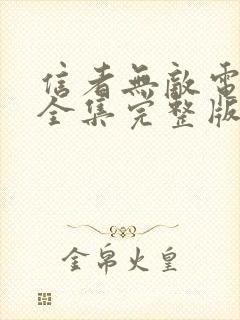 信者無敵電
全集完整版
金帛火皇